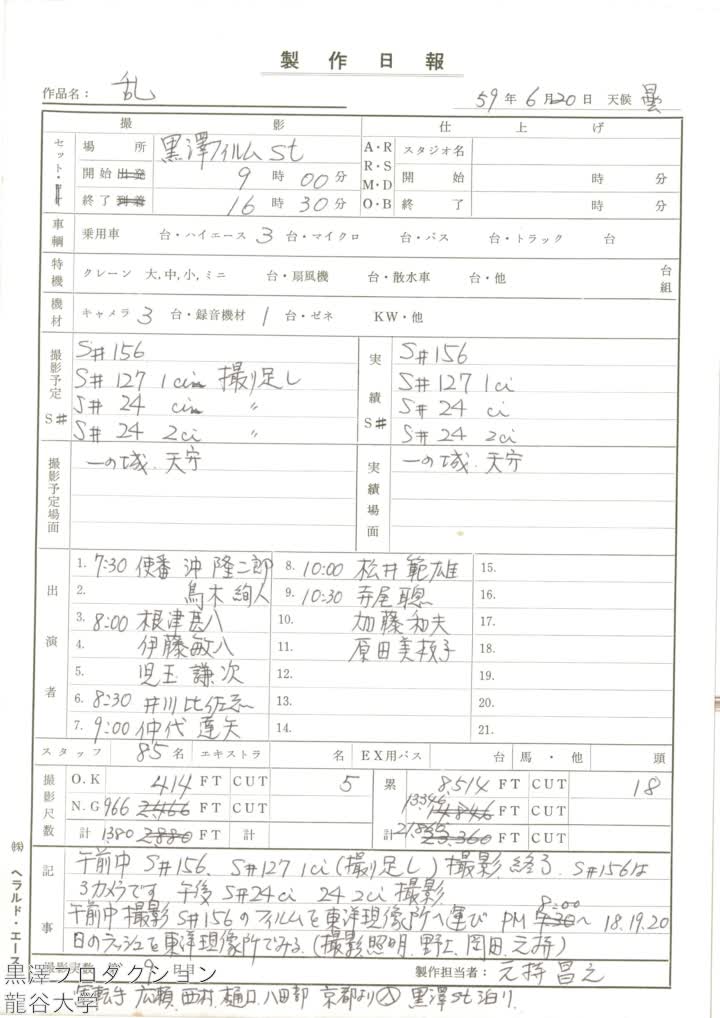 製作日報
作品名： 乱 59年6月20日 天候 曇
撮影 仕上げ
セット・ 場所 黒澤フィルムSt A・R R・S M・D O・B スタジオ名
開始 出発 9時00分 開始 時 分
終了 到着 16時30分 終了 時 分
車輌 乗用車 台・ハイエース 3台・マイクロ 台・バス 台・トラック 台
特機 クレーン 大,中,小,ミニ 台・扇風機 台・散水車 台・他 台 組
機材 キャメラ 3台・録音機材 1台・ゼネ KW・他
撮影予定 S# 実績 S#
S#156 S#156
S#127 1cin 撮り足し S#127 1ci
S#24 cin 〃 S#24 ci
S#24 2ci 〃 S#24 2ci
撮影予定場面 一の城．天守 実績場面 一の城．天守
出演者
1. 7:30 使番 沖 隆二郎 8. 10:00 松井範雄 15.
2. 鳥木絢人 9. 10:30 寺尾聰 16.
3. 8:00 根津甚八 10. 加藤和夫 17.
4. 伊藤敏八 11. 原田美枝子 18.
5. 児玉謙次 12. 19.
6. 8:30 井川比佐志 13. 20.
7. 9:00 仲代達矢 14. 21.
スタッフ 85名 エキストラ 名 EX用バス 台 馬・他 頭
撮影尺数 O.K 414 FT CUT 5 累計 8,514 FT CUT 18
N.G 966 2,466 FT CUT 13,346 14,846 FT CUT
計 1380 2,880 FT 計 23,360 FT CUT
記事
午前中 S#156、S#127 1ci（撮り足し）撮影終了．S#156は
3カメラです 午後 S#24ci 24 2ci 撮影
午前中撮影S#156のフィルムを東洋現像所へ運び PM 8:00〜 18.19.20
日のラッシュを東洋現像所でみる．（撮影照明．野上．岡田．元持）
撮影実数 9日目 製作担当者： 元持昌之
運転手 広瀬．西村．樋口．八田部 京都より入 黒澤St泊り．
㈱ヘラルド・エース
黒澤プロダクション
龍谷大学